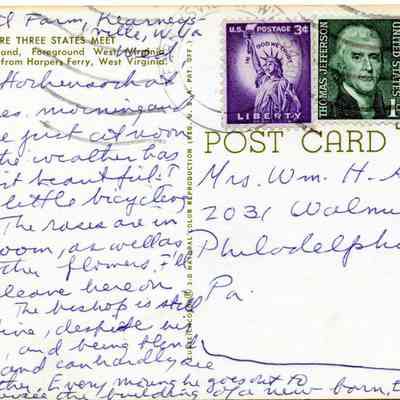 Farm, Kearneys-
ville, W. Va
RE THREE STATES MEET
land, Foreground West Virginia
from Harpers Ferry, West Virginia.
morning and
the weather has
beautiful. I
little bicycling
The roses are in
oom, as well as
other flowers. I'll
leave here on
The bishop is still
ive, despite his
and being
and can hardly see
Every morning he goes out to
the building of a new barn.
U.S. POSTAGE 3¢
IN GOD WE TRUST
LIBERTY
THOMAS JEFFERSON
UNITED STATES
1¢
POST CARD
Mrs. Wm. H. A
2031 Walnu
Philadelpha
Pa.
NATURAL COLOR REPRODUCTION
REG. U. S. PAT. OFF.